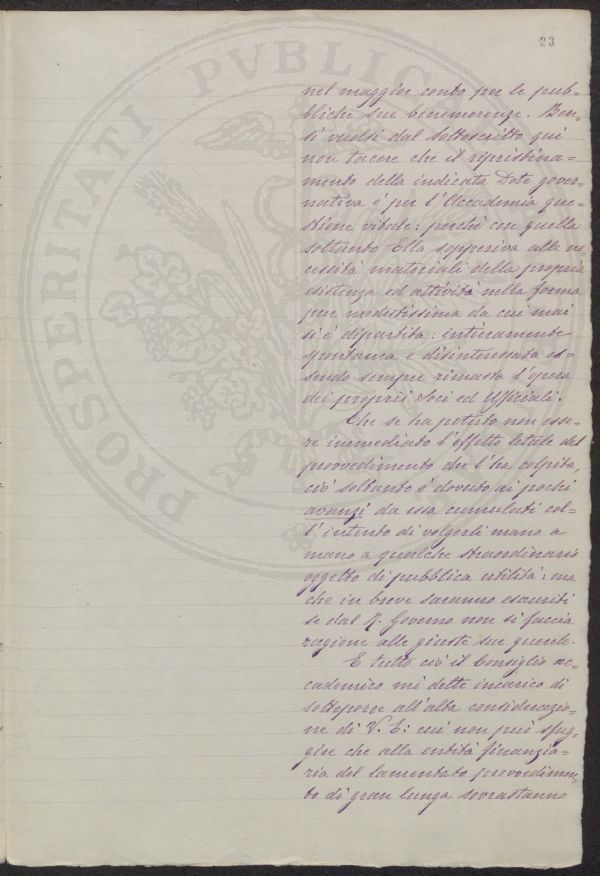 23
PROSPERITATI PVBLICA
nel maggior conto per le pub=
bliche sue benemerenze. Ben=
sì vuolsi dal sottoscritto qui
non tacere che il ripristina=
mento della indicata Dote gover=
nativa è per l'Accademia que=
stione vitale: perchè con quella
soltanto Ella sopperiva alle ne=
cessità materiali della propria
esistenza ed attività nella forma
pur modestissima da cui mai
si è dipartita: interamente
spontanea e disinteressata es=
sendo sempre rimasta l'opera
dei proprii Soci ed Ufficiali.
Che se ha potuto non esse=
re immediato l'effetto letale del
provvedimento che l'ha colpita,
ciò soltanto è dovuto ai pochi
avanzi da essa cumulati col=
l'intento di volgerli mano a
mano a qualche straordinario
oggetto di pubblica utilità: ma
che in breve saranno esauriti
se dal R. Governo non si faccia
ragione alle giuste sue querele.
E tutto ciò il Consiglio ac=
cademico mi dette incarico di
sottoporre all'alta considerazio=
ne di V. E: cui non può sfug=
gire che alla entità finanzia=
ria del lamentato provvedimen=
to di gran lunga sovrastanno